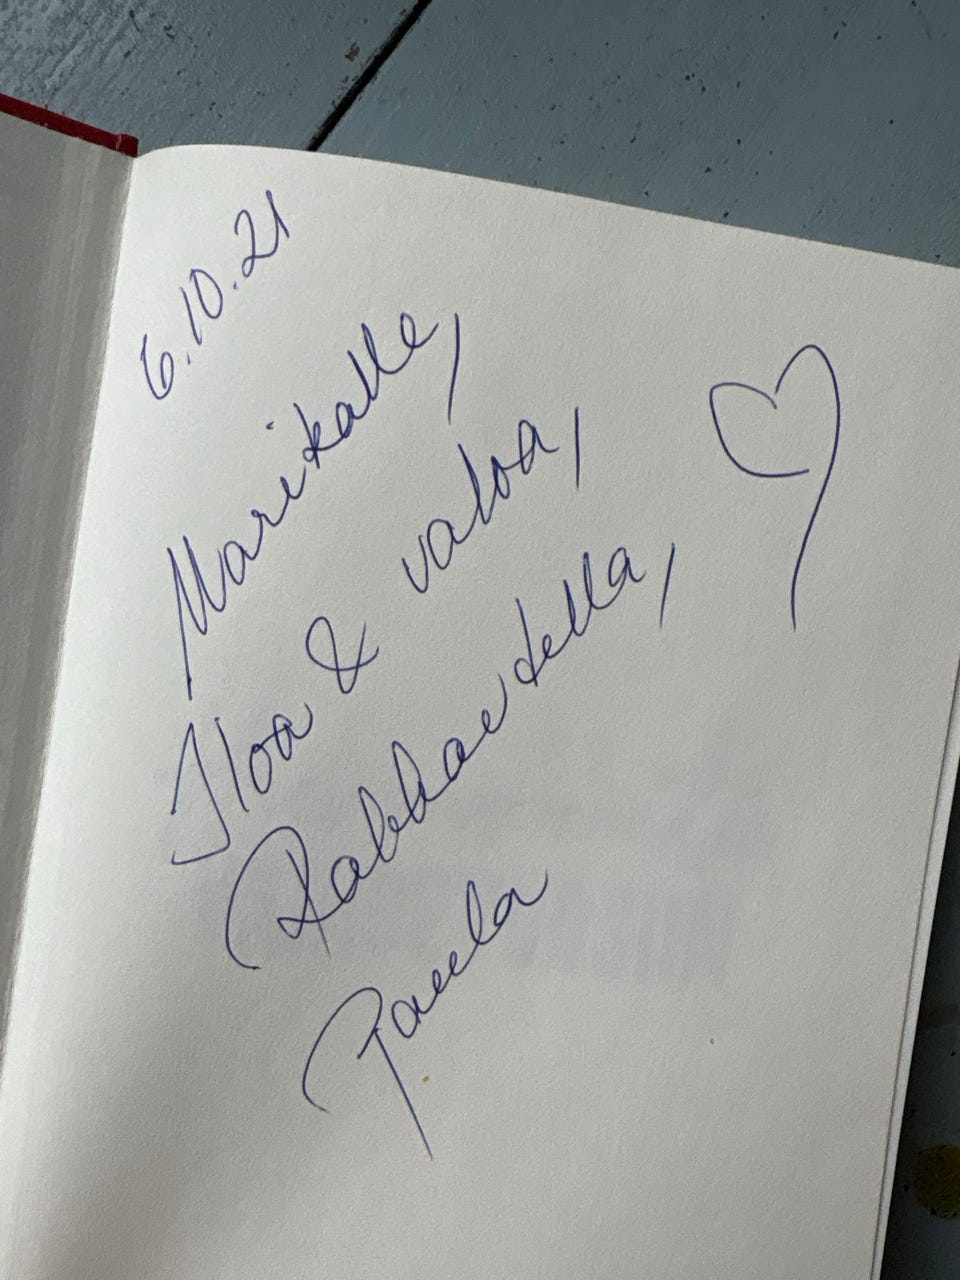 6.10.21
Marikalle,
Iloa & valoa,
Rakkaudella,
Pamela